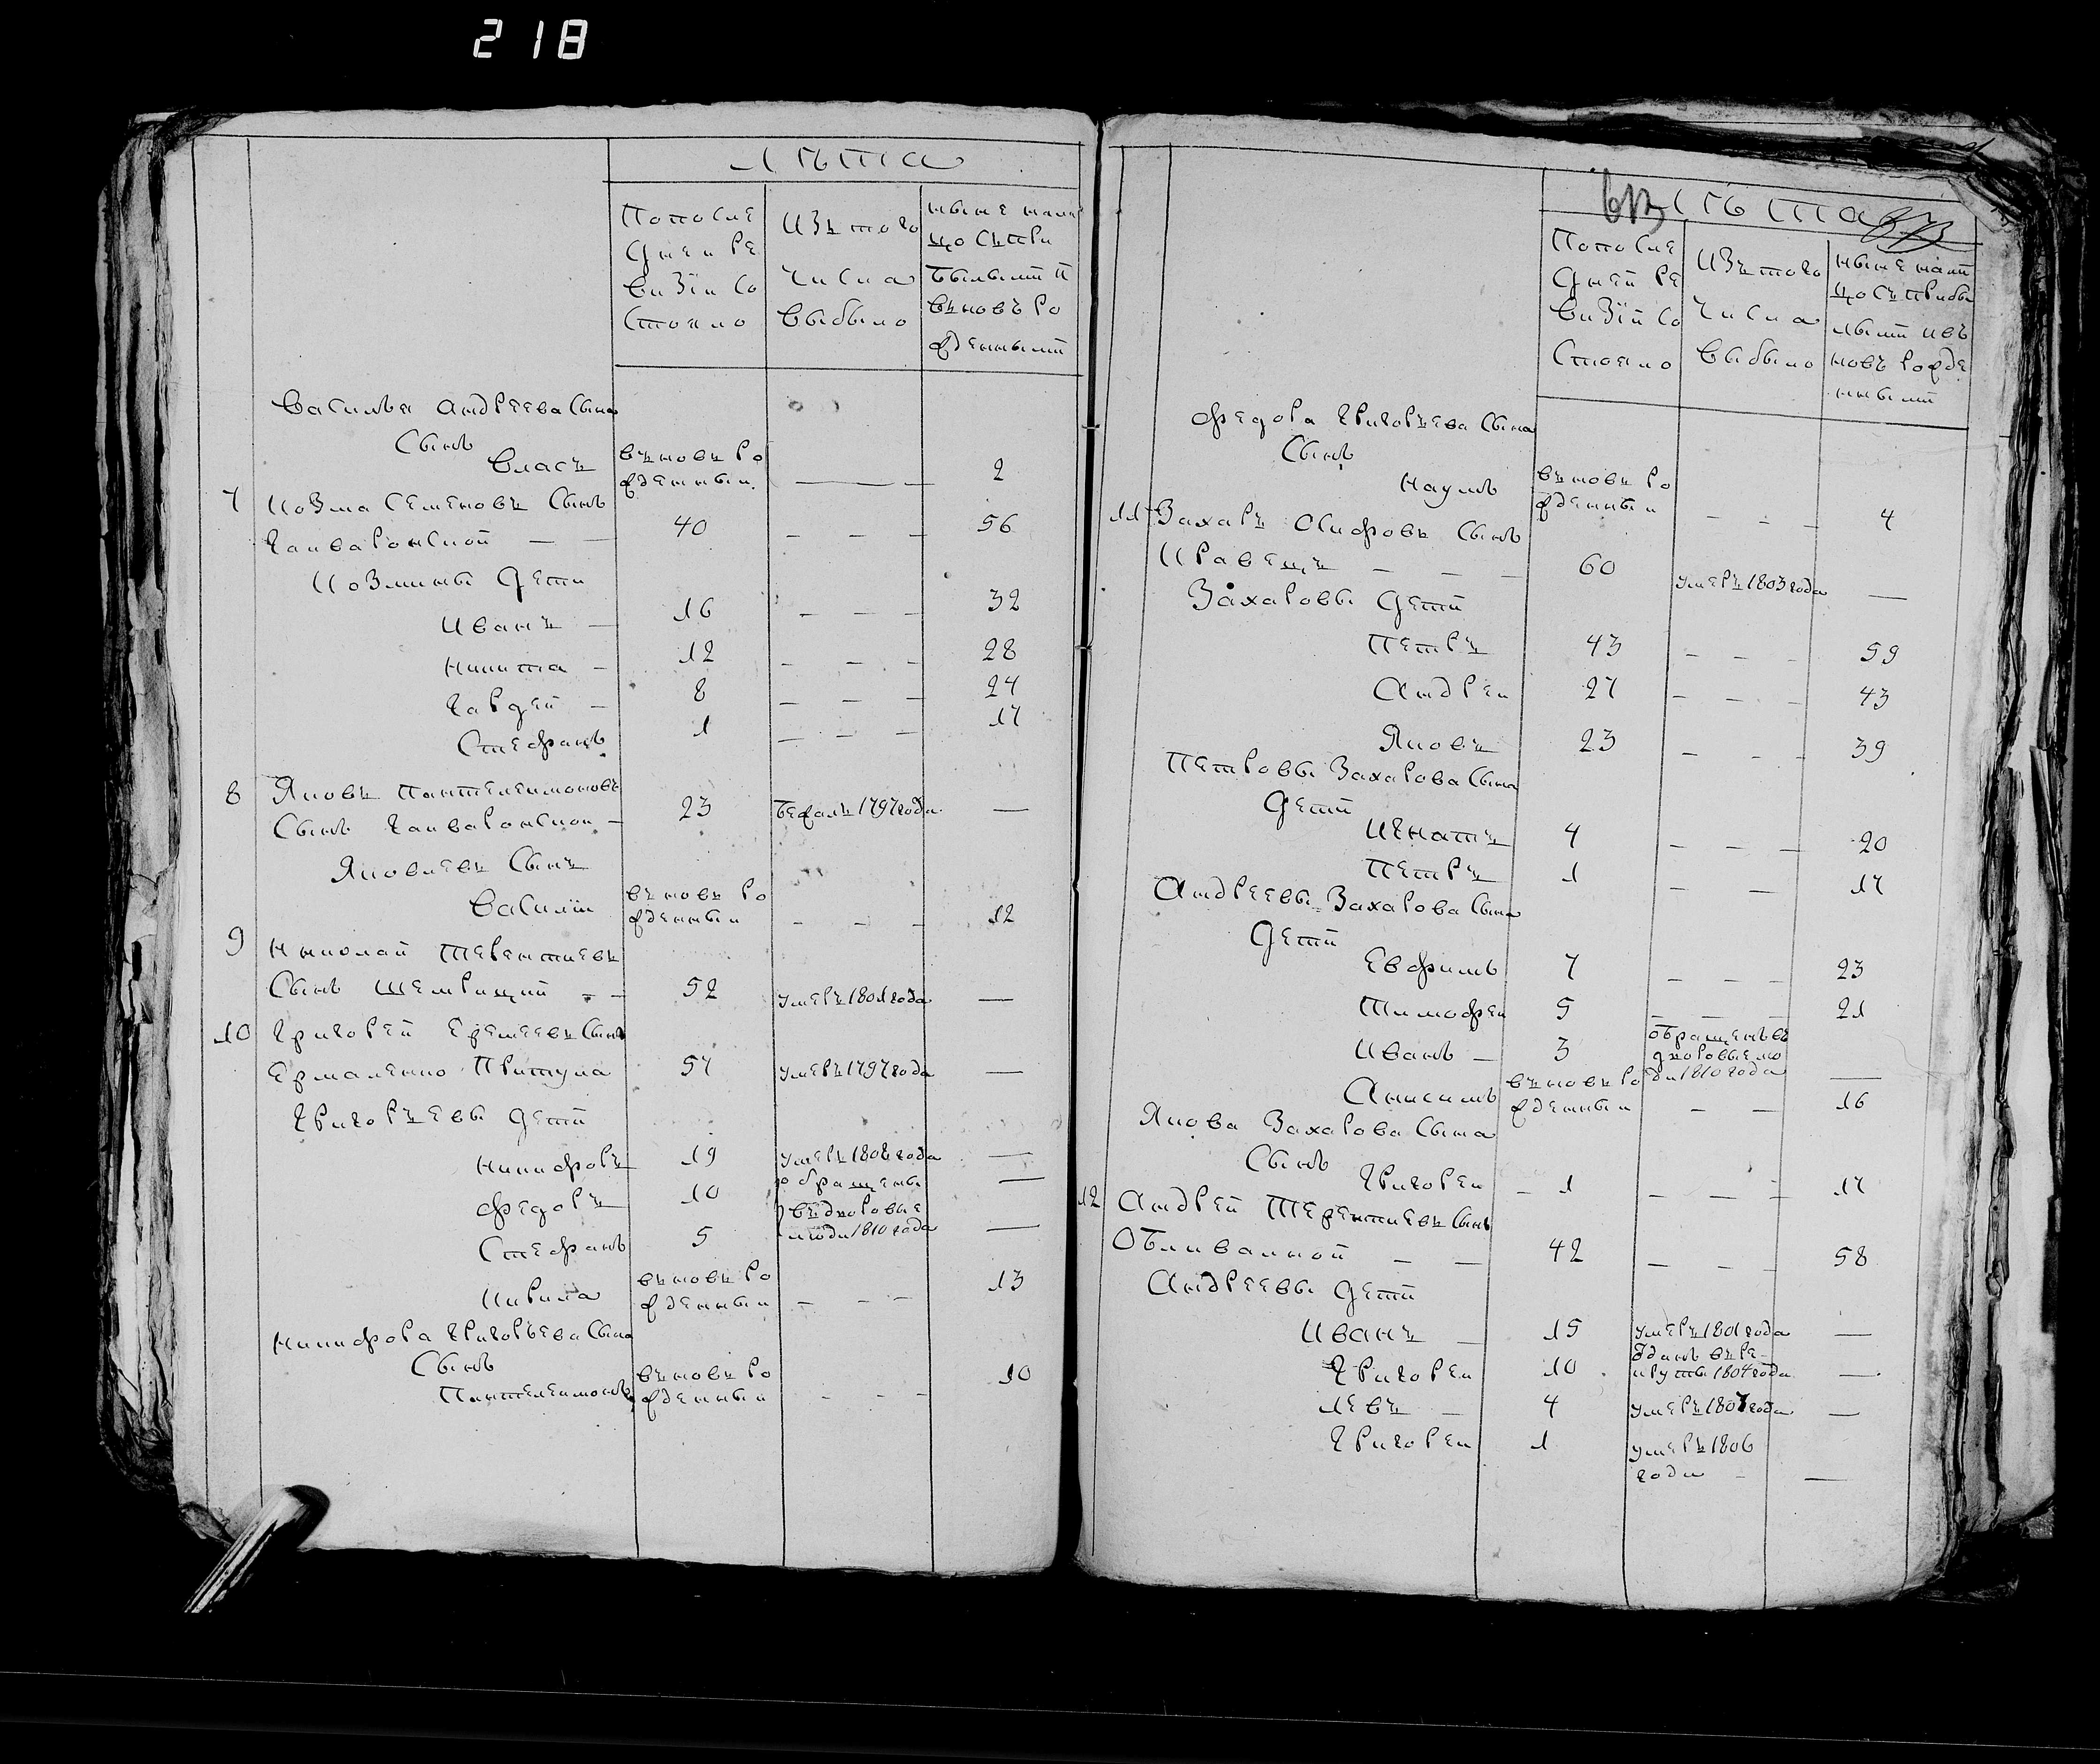 218
лѣта
По после
дней ре
визіи со
стояло
Изъ того
числа
выбыло
ныне налиц
цо съ при
былыми и
вновъ ро
жденными
Василья Андреева Сына
Сынъ
Власъ
вновь ро
жденный
2
7 Козма Семеновъ Сынъ
Гайваронской 40 56
Козмины дети
Иванъ 16 32
Никита 12 28
Гардей 8 24
Стефанъ 1 17
8 Яковъ Пантелеимоновъ
Сынъ Гайваронской 23 бежалъ 1797 года —
Яковлевъ Сынъ
Василій
вновь ро
жденный
12
9 Николай Терентиевъ
Сынъ 52 умеръ 1801 года —
10 Григорей Еремеевъ Сынъ
Ермаленко Притула 57 умеръ 1797 года —
Григорьевы дети
Никифоръ 19 умеръ 1808 года —
Федоръ 10 обращены —
Стефанъ 5 въ дворовые
люди 1810 года —
Кирила
вновь ро
жденный
13
Никифора Григорьева Сына
Сынъ
Пантелеимонъ
вновь ро
жденный
10
лѣта
По после
дней ре
визіи со
стояло
Изъ того
числа
выбыло
ныне нали
цо съ прибы
лыми и въ
новъ рожде
нными
Федора Григорьева Сына
Сынъ
Наумъ
вновь ро
жденный
4
11 Захаръ Осифовъ Сынъ
Кравецъ 60 умеръ 1803 года —
Захаровы дети
Петръ 43 59
Андрей 27 43
Яковъ 23 39
Петровы Захарова Сына
дети
Игнатъ 4 20
Петръ 1 17
Андреевы Захарова Сына
дети
Евфимъ 7 23
Тимофей 5 21
Иванъ 3
обращенъ въ
дворовые лю
ди 1810 года —
Анисимъ
вновь ро
жденный
16
Якова Захарова Сына
Сынъ
Григорей 1 17
12 Андрей Терентиевъ Сынъ
Обливанной 42 58
Андреевы дети
Иванъ 15 умеръ 1801 года —
Григорей 10
зданъ въ ре
круты 1804 года —
Левъ 4 умеръ 1807 года —
Григорей 1
умеръ 1806
года —